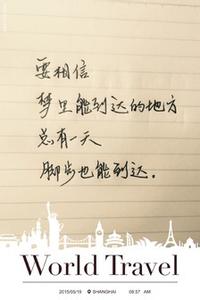 要相信
梦里能到达的地方
总有一天
脚步也能到达。
World Travel
2015/05/19 SHANGHAI 09:57 AM